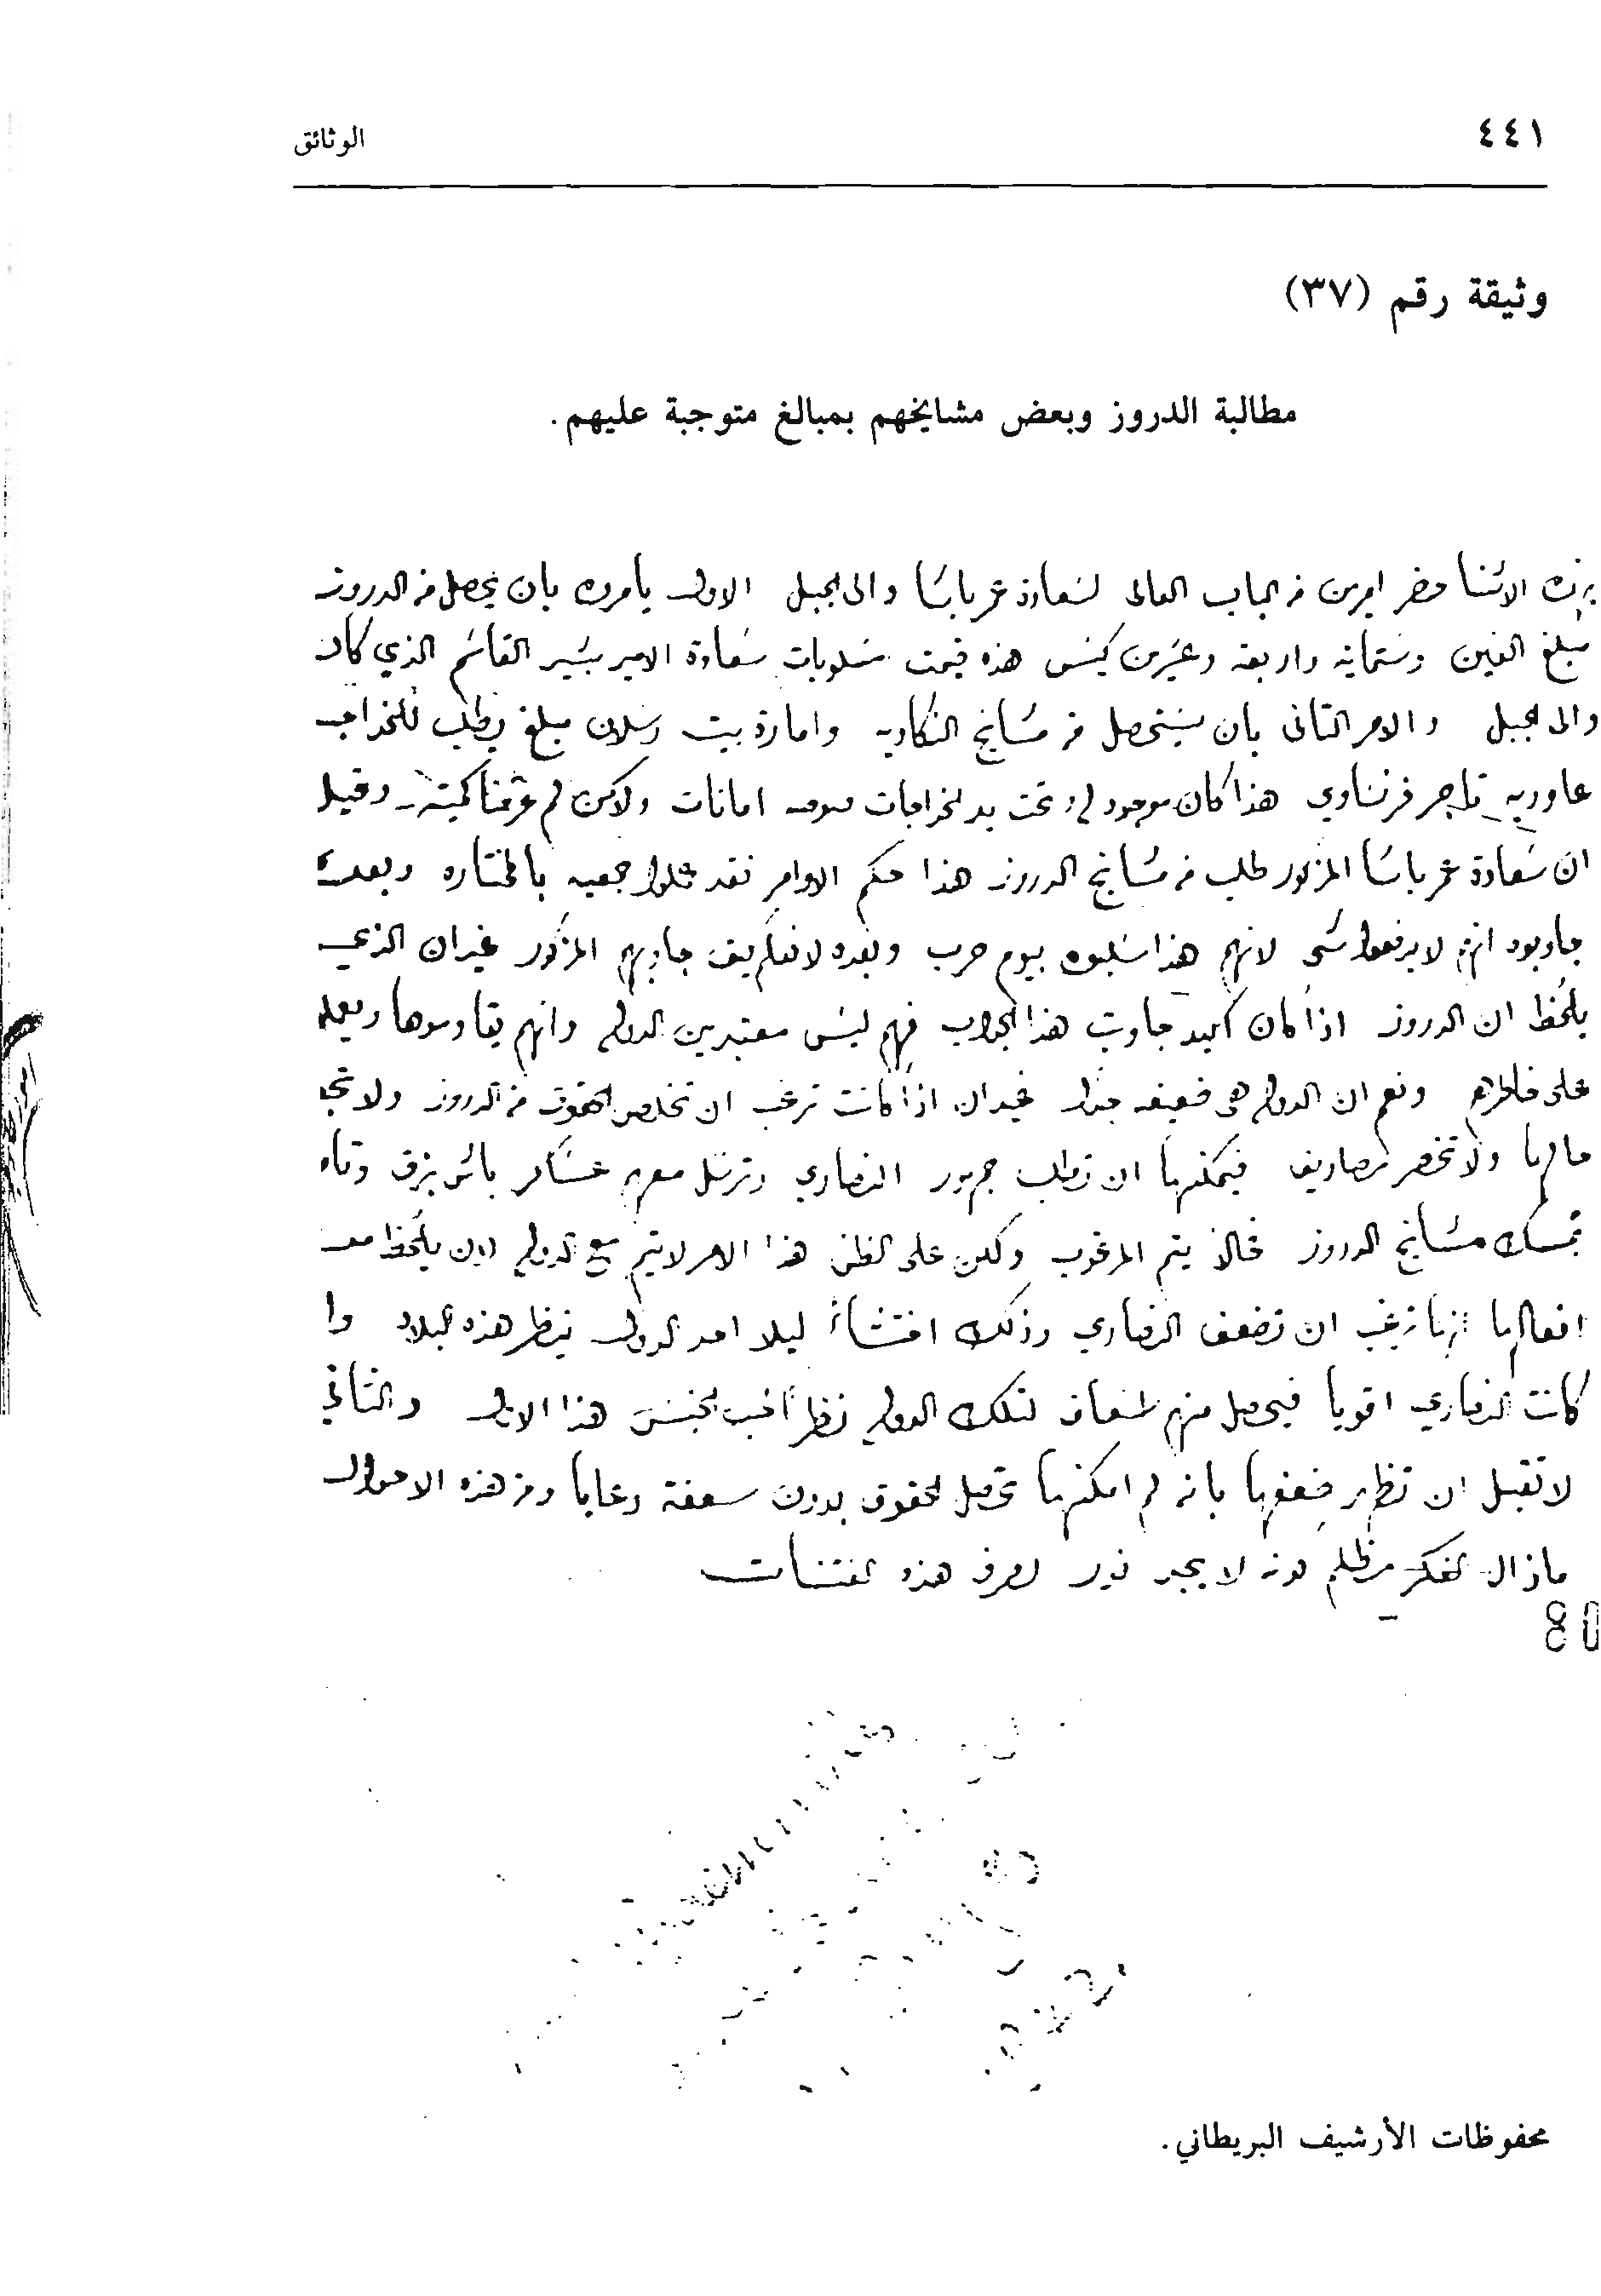 ٤٤١
الوثائق
وثيقة رقم (٣٧)
مطالبة الدروز وبعض مشايخهم بمبالغ متوجبة عليهم.
بهذه الاثنا حضر امرين من الباب العالى لسعادة عمر باشا والى الجبل الاول يأمروه بان يحصل من الدروز
مبلغ الفين وستماية واربعة وعشرين كيس هذه قيمت مسلوبات سعادة الامير بشير القاسم الذي كان
والى الجبل والامر الثانى بان يستحصل من مشايخ النكاديه وامارة بيت رسلان مبلغ يطلب للخواجه
تاجر فرنساوي هذا كان موجود تحت يد الخواجات امانات ولاكن لم عرفنا كميته وقيل
ان سعادة عمر باشا المزكور طلب من مشايخ الدروز هذا حكم الاوامر فقد عملوا جمعيه بالمختاره وبعده
جاوبوه انهم لا يدفعوا شى لانهم هذا سلبوه بيوم حرب وبعده لا نعلم كيف جاوبهم المزكور غير ان الذي
يلحظ ان الدروز اذا كان اكيد جاوبت هذا الجواب فهم ليس معتبرين الدوله وانهم يقاوموها
على خاطرهم ونعم ان الدوله هى ضعيفه جدا غير ان اذا كانت ترغب ان تخلص الحقوق من الدروز ولا
مالها ولا تخسر مصاريف فيمكنها ان تطلب جمهور النصاري وترسل معهم عساكر
تمسك مشايخ الدروز فحالا يتم المرغوب ولكن على الظن هذا الامر لا يتم مع الدوله لان يلحظ من
افعالها انها ترغب ان تضعف النصاري وذلك اختشاء ليلا احد الدول ينظر هذه البلاد
كانت النصاري اقويا فيحصل منهم اسعاف لتلك الدوله نظراً هذا الاول والثاني
لا تقبل ان تظهر ضعفها بانه لم امكنها تحصل الحقوق بدون رعايا ومن هذه الاحوال
مازال الفكر مظلم لا يجد نور لصرف هذه
محفوظات الأرشيف البريطاني.